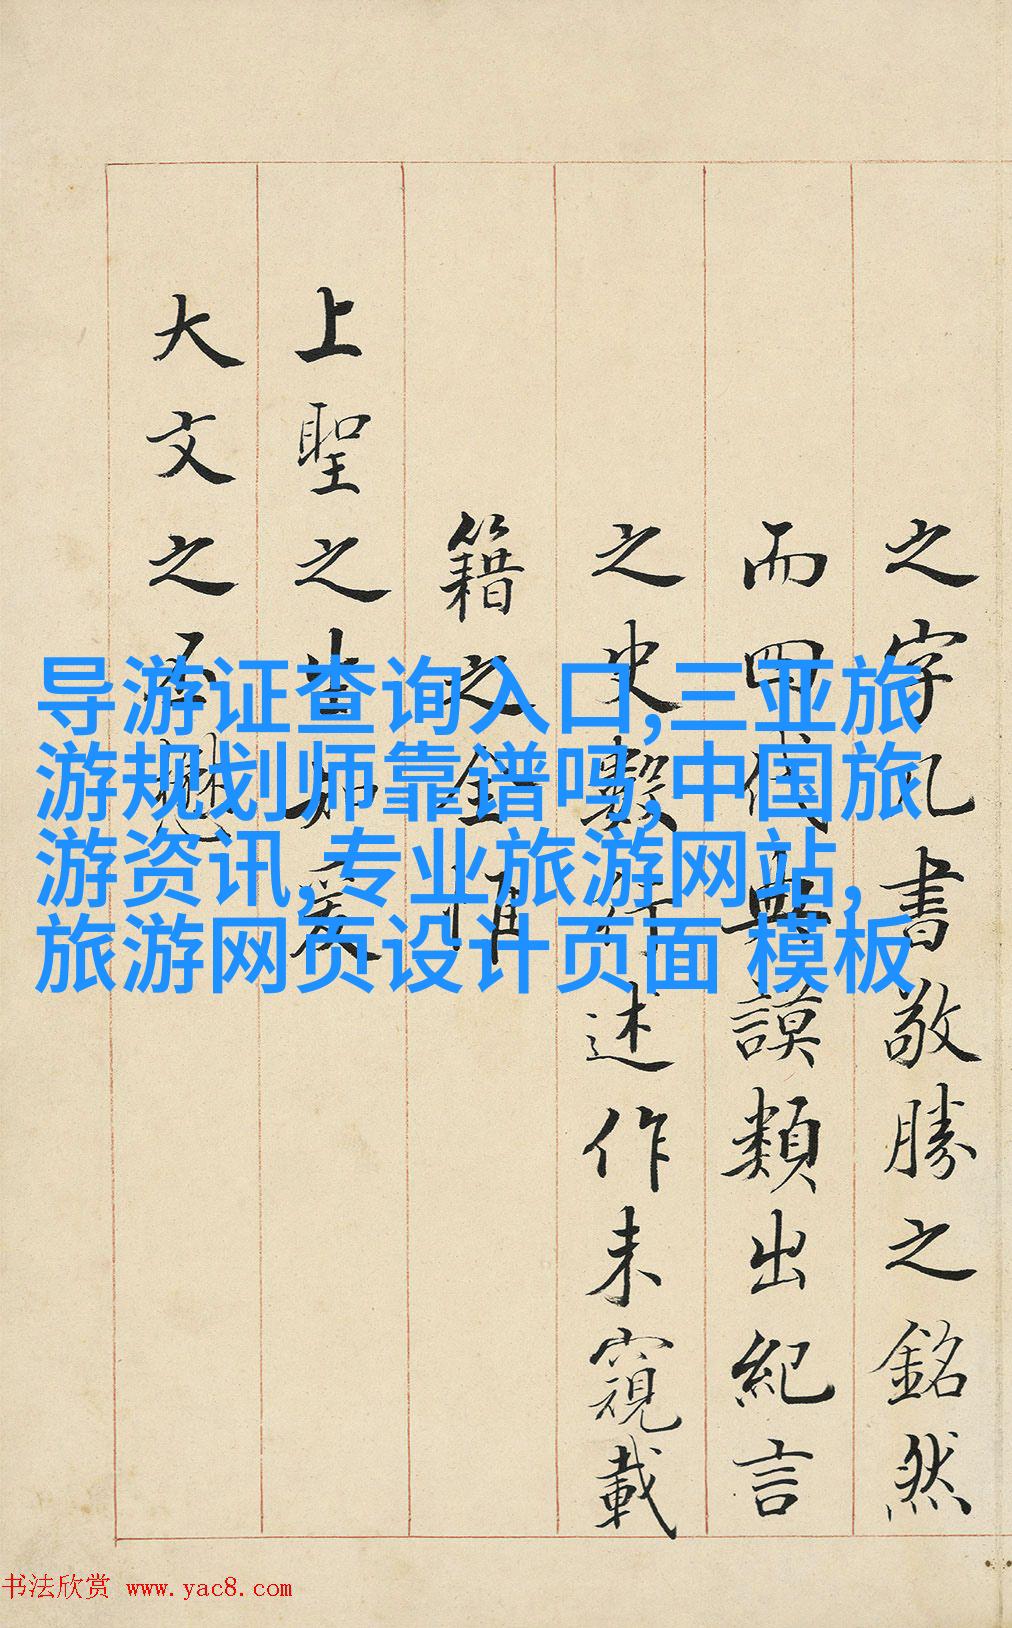 之字凡書敬勝之銘然
而四代典謨類出紀言
之史繫行述作未窺載
籍之全惟
上聖之生知爰
大文之丕懋
导游证查询入口,三亚旅
游规划师靠谱吗,中国旅
游资讯,专业旅游网站,
旅游网页设计页面 模板
书法欣赏 www.yac8.com